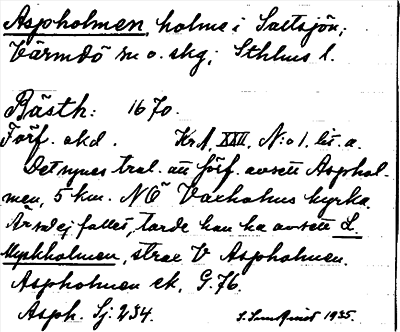 Aspholmen, holme i Saltsjön,
Värmdö sn o. skg; Sthlms l.
Rästh: 1670.
Förf. okd. Kr A, XXII, N:o 1, lit. a.
Det synes trol. att förf. avsett Asphol-
men, 5 km. NÖ Vaxholms kyrka.
Är så ej fallet, torde han ha avsett L.
Myrkholmen, strax V Aspholmen.
Aspholmen ek, G. 76.
Asph. Sj: 234. 1935.